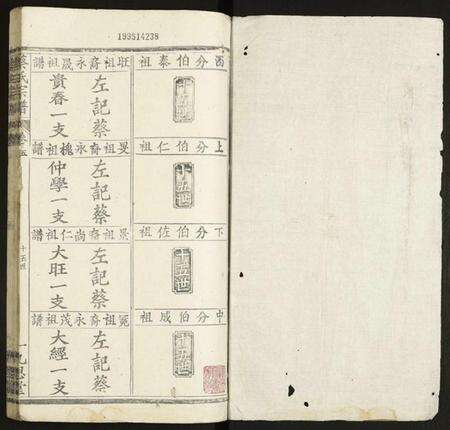 199514238
酉分伯泰祖
十五世
旺祖裔永晟祖譜
左記蔡
貴春一支
上分伯仁祖
十五世
旻祖裔永槐祖譜
左記蔡
仲學一支
下分伯佐祖
十五世
祖裔尚仁祖譜
左記蔡
大旺一支
中分伯威祖
十五世
冕祖裔永茂祖譜
左記蔡
大經一支
蔡氏宗譜
卷五
十五世